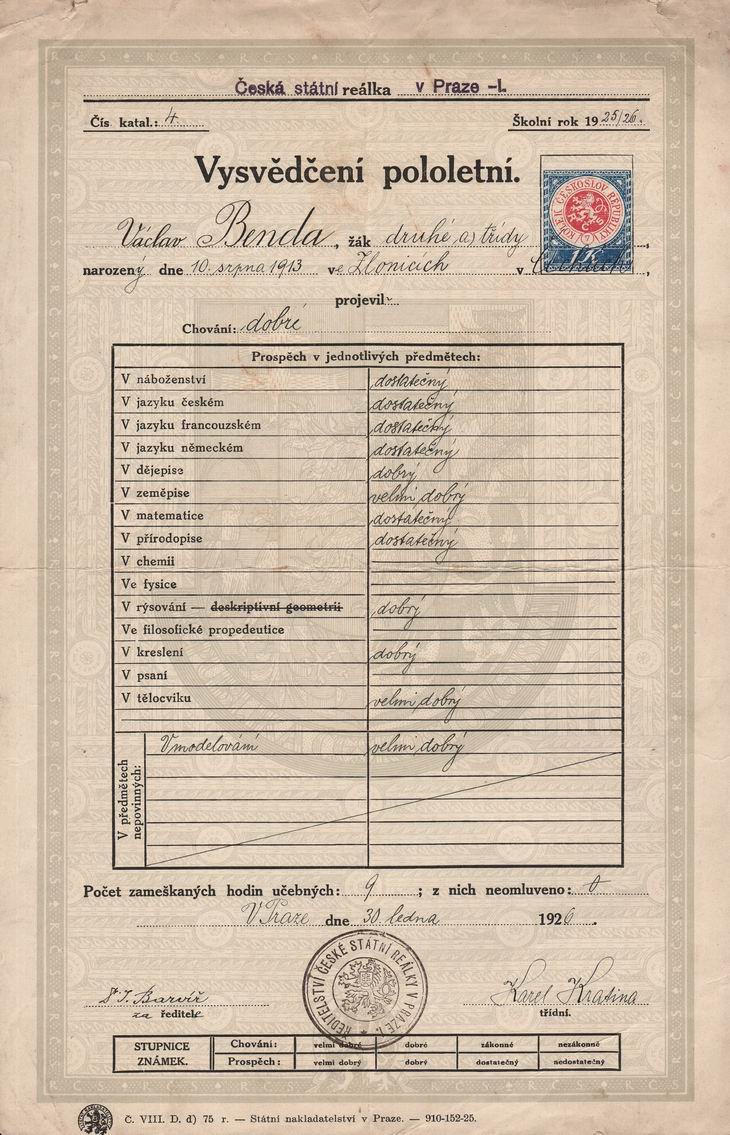 Česká státní reálka v Praze -I.
Čís katal.: 4. Školní rok 1925/26.
Vysvědčení pololetní.
KOLEK ČESKOSLOV. REPUBLIKY
1 K
Václav Benda, žák druhé a) třídy,
narozený dne 10. srpna 1913 ve Zlonicích v Čechách,
projevil
Chování: dobré
Prospěch v jednotlivých předmětech:
V náboženství dostatečný
V jazyku českém dostatečný
V jazyku francouzském dostatečný
V jazyku německém dostatečný
V dějepise dobrý
V zeměpise velmi dobrý
V matematice dostatečný
V přírodopise dostatečný
V chemii
Ve fysice
V rýsování — deskriptivní geometrii dobrý
Ve filosofické propedeutice
V kreslení dobrý
V psaní
V tělocviku velmi dobrý
V předmětech nepovinných:
V modelování velmi dobrý
Počet zameškaných hodin učebných: 9; z nich neomluveno: 0
V Praze dne 30. ledna 1926.
ŘEDITELSTVÍ ČESKÉ STÁTNÍ REÁLKY V PRAZE I.
Karel Kratina
za ředitele třídní.
STUPNICE ZNÁMEK.
Chování: velmi dobré dobré zákonné nezákonné
Prospěch: velmi dobrý dobrý dostatečný nedostatečný
Č. VIII. D. d) 75 r. — Státní nakladatelství v Praze. — 910-152-25.